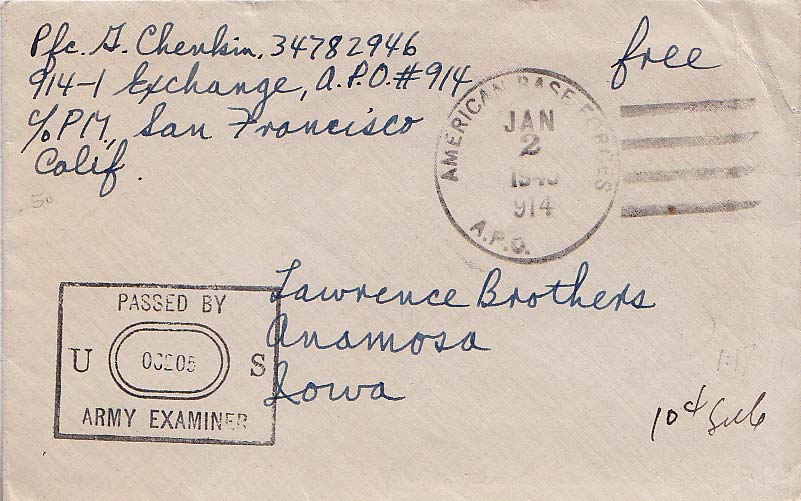 Pfc. G. Chenkin, 34782946
914-1 Exchange, A.P.O. #914
c/o PM, San Francisco
Calif.
free
AMERICAN BASE FORCES
JAN
2
914
A.P.O.
50
PASSED BY
U S
ARMY EXAMINER
Lawrence Brothers
Anamosa
Iowa
10¢